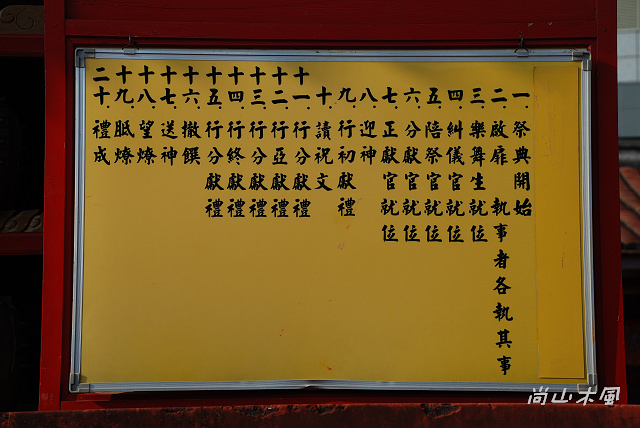 一.祭典開始
二.啟扉 執事者各執其事
三.樂舞生就位
四.糾儀官就位
五.陪祭官就位
六.分獻官就位
七.正獻官就位
八.迎神
九.行初獻禮
十.讀祝文
十一.行分獻禮
十二.行亞獻禮
十三.行分獻禮
十四.行終獻禮
十五.行分獻禮
十六.撤饌
十七.送神
十八.望燎
十九.眂燎
二十.禮成
尚山木風